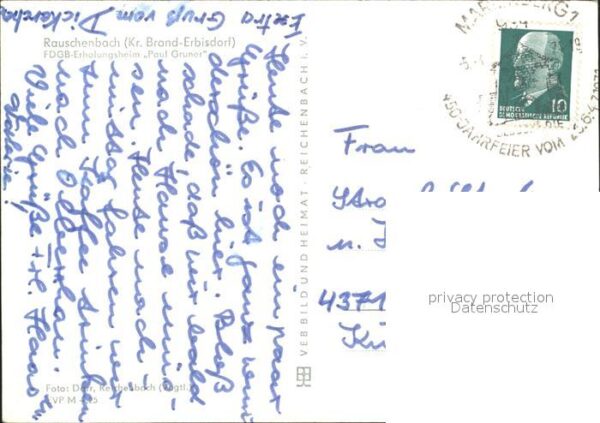 Extra Gruß vom Dickerchen
Rauschenbach (Kr. Brand-Erbisdorf)
FDGB-Erholungsheim „Paul Gruner"
Heute noch ein paar
Grüße. Es ist ganz wun-
derschön hier. Bloß
schade, daß wir bald
nach Hause müs-
sen. Heute nach-
mittag fahren wir
zum Kaffee trinken
nach Olbernhau.
Viele Grüße
Foto: Darr, Reichenbach (Vogtl.)
VEB BILD UND HEIMAT · REICHENBACH i. V.
MARIENBERG 1
450-JAHRFEIER VOM
10
DEUTSCHE
DEMOKRATISCHE REPUBLIK
Frau
4371
privacy protection
Datenschutz